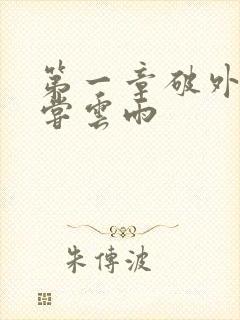 第一章破外
嘗雲雨
朱傳波